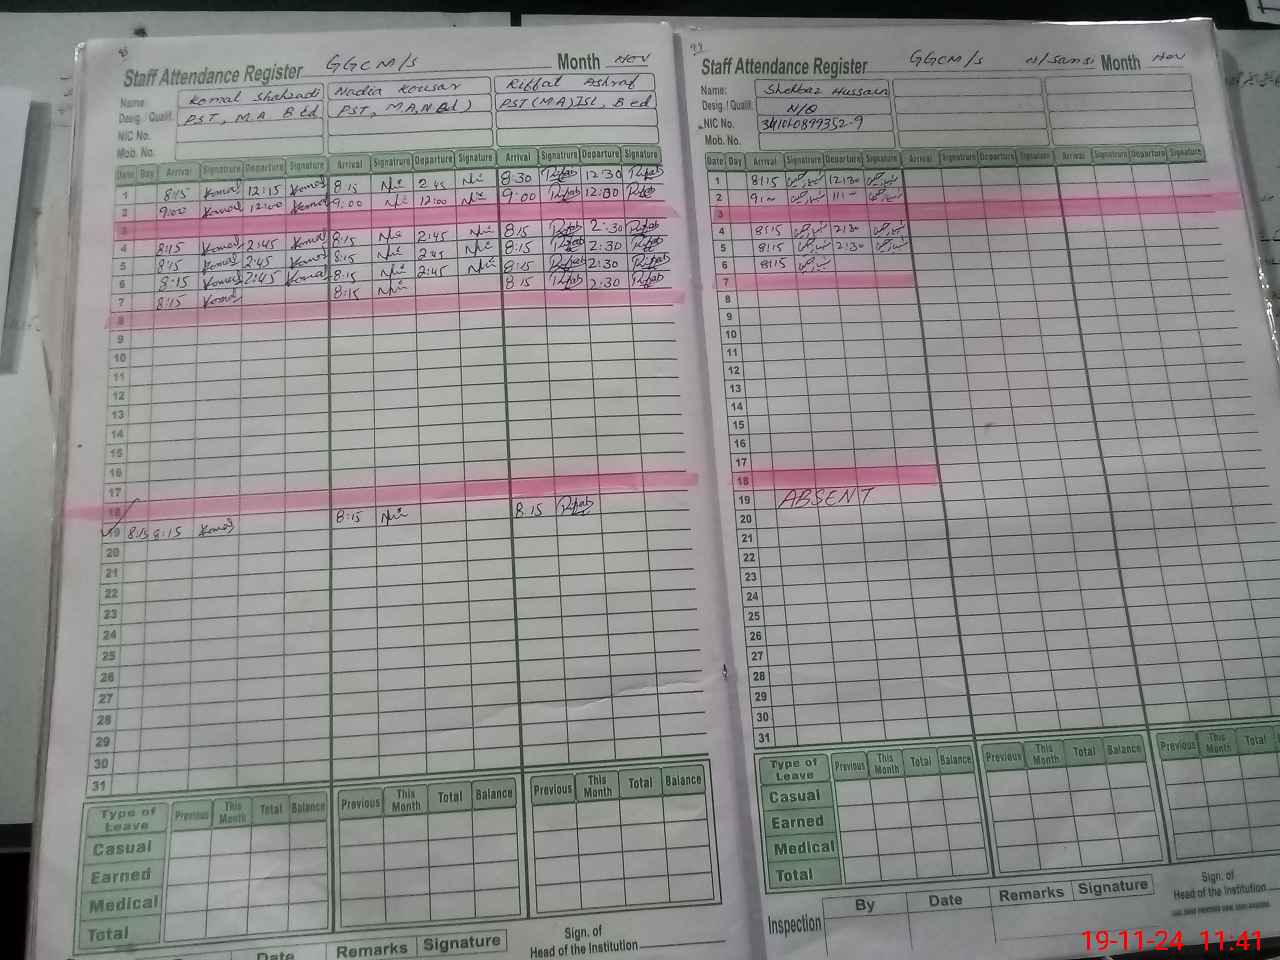 8
Staff Attendance Register GGCM/s Month Nov
Name: Komal Shahzadi Nadia Kousar Riffat Ashraf
Desig./ Qualif. PST, M.A B Ed PST, M.A, PST (M A) ISL, B ed
NIC No.
Mob. No.
Date Day Arrival Signatrure Departure Signature Arrival Signatrure Departure Signature Arrival Signatrure Departure Signature
1 8:15 Komal 12:15 Komal 8:15 2:45 8:30 Riffat 12:30 Riffat
2 9:00 Komal 12:00 Komal 9:00 12:00 9:00 Riffat 12:30 Riffat
3
4 8:15 Komal 2:45 Komal 8:15 2:45 8:15 Riffat 2:30 Riffat
5 8:15 Komal 2:45 Komal 8:15 2:45 8:15 Riffat 2:30 Riffat
6 8:15 Komal 2:45 Komal 8:15 2:45 8:15 Riffat 2:30 Riffat
7 8:15 Komal 8:15 8:15 Riffat 2:30 Riffat
8
9
10
11
12
13
14
15
16
17
18
19 8:15 8:15 Komal 8:15 8:15 Riffat
20
21
22
23
24
25
26
27
28
29
30
31
Type of Leave Previous This Month Total Balance Previous This Month Total Balance Previous This Month Total Balance
Casual
Earned
Medical
Total
Date Remarks Signature
Sign. of
Head of the Institution
Staff Attendance Register GGCM/s Month Nov
Name: Shehbaz Hussain
Desig./ Qualif. N/Q
NIC No. 34101-0899352-9
Mob. No.
Date Day Arrival Signatrure Departure Signature Arrival Signatrure Departure Signature Arrival Signatrure Departure Signature
1 8:15 12:30
2 9:00 11:00
3
4 8:15 2:30
5 8:15 2:30
6 8:15
7
8
9
10
11
12
13
14
15
16
17
18
19 ABSENT
20
21
22
23
24
25
26
27
28
29
30
31
Type of Leave Previous This Month Total Balance Previous This Month Total Balance Previous This Month Total
Casual
Earned
Medical
Total
Inspection By Date Remarks Signature
Sign. of
Head of the Institution
19-11-24 11:41